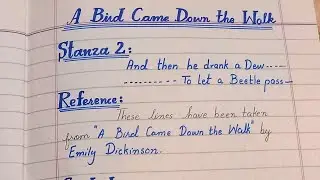 A Bird Came Down the Walk
Stanza 2:
And then he drank a Dew-----
---------- To let a Beetle pass—
Reference:
These lines have been taken
from "A Bird Came Down the Walk" by
Emily Dickinson.